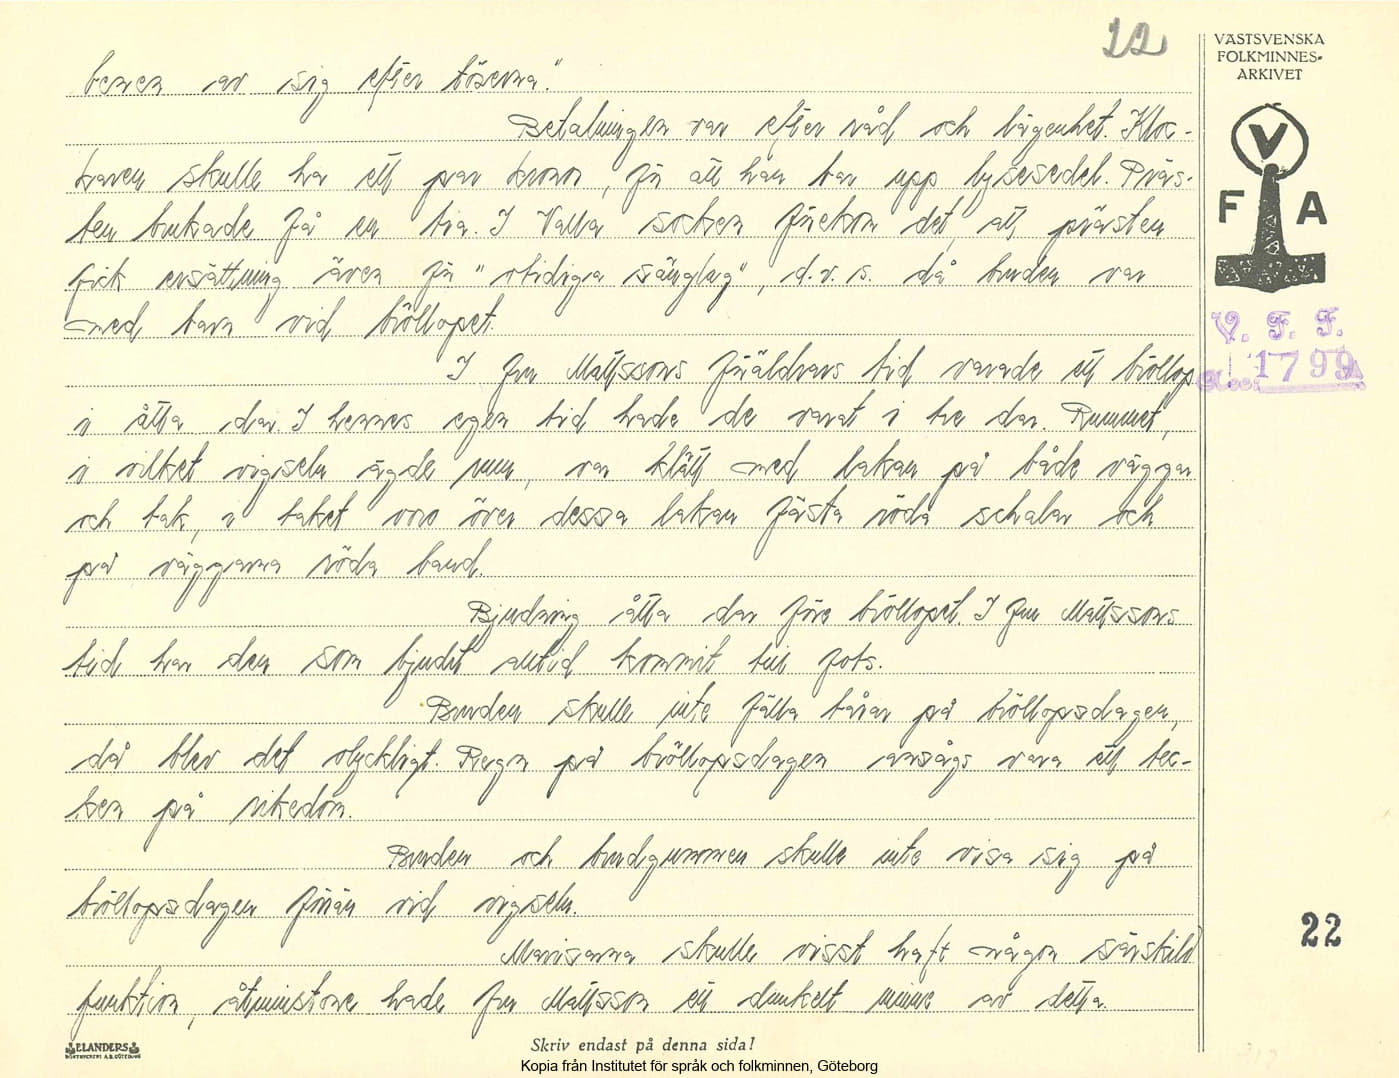 22
VÄSTSVENSKA
FOLKMINNES-
ARKIVET
benen av sig efter bösorna"
Betalningen var efter råd och lägenhet. Kloc-
karen skulle ha ett par kronor, för att han bar upp lysesedel. Präs-
ten brukade få en tia. I Valla socken förekom det, att prästen
fick ersättning även för "otidiga sänglag", d.v.s. då bruden var
med barn vid bröllopet.
V
F A
V. F. F.
1799
I fru Mattssons föräldrars tid varade ett bröllop
i åtta dar. I hennes egen tid hade de varat i tre dar. Rummet,
i vilket vigseln ägde rum, var klätt med lakan på både väggar
och tak, i taket voro över dessa lakan fästa röda schalar och
på väggarna röda band.
Bjudning åtta dar före bröllopet. I fru Mattssons
tid har den som bjudit alltid kommit till fots.
Bruden skulle inte fälla tårar på bröllopsdagen,
då blev det olyckligt. Regn på bröllopsdagen ansågs vara ett tec-
ken på rikedom.
Bruden och brudgummen skulle inte visa sig på
bröllopsdagen förrän vid vigseln.
skulle visst haft någon särskild
funktion, åtminstone hade fru Mattsson ett dunkelt minne av detta.
22
ELANDERS
Skriv endast på denna sida!
Kopia från Institutet för språk och folkminnen, Göteborg